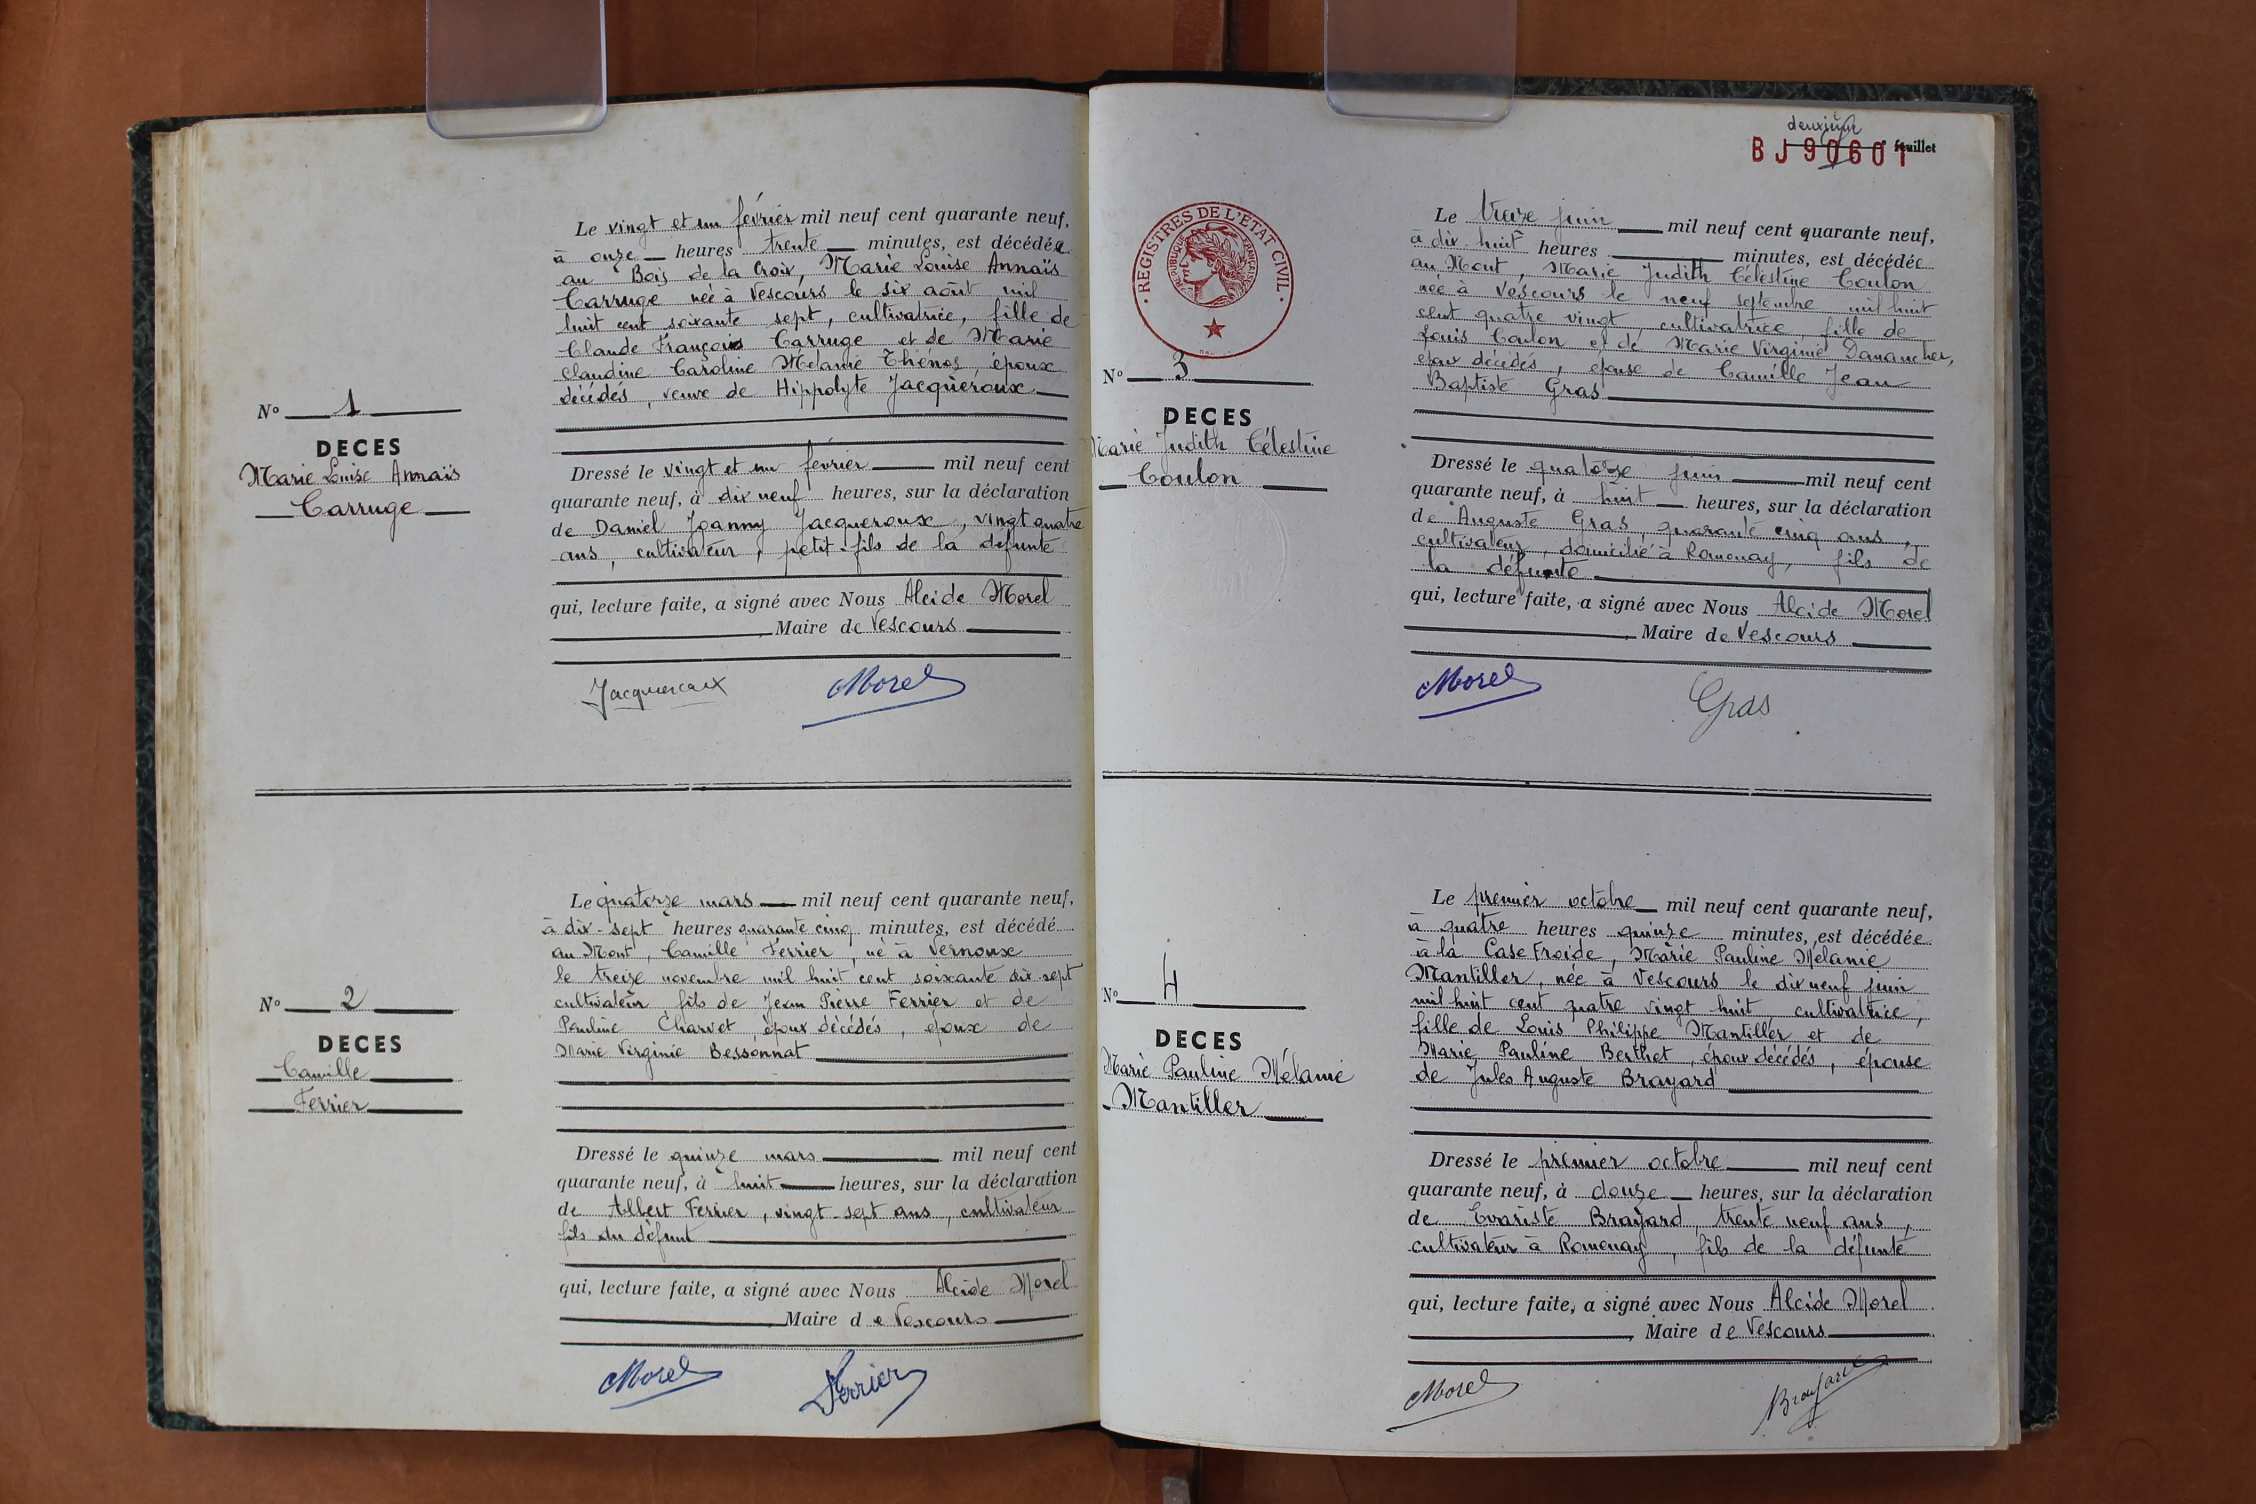 N° 1
DECES
Marie Louise Annaïs
Carruge
Le vingt et un février mil neuf cent quarante neuf,
à onze heures trente minutes, est décédée
au Bois de la Croix, Marie Louise Annaïs
Carruge née à Vescours le six août mil
huit cent soixante sept, cultivatrice, fille de
Claude François Carruge et de Marie
Claudine Caroline Mélanie Thénoz, époux
décédés, veuve de Hippolyte Jacqueroux
Dressé le vingt et un février mil neuf cent
quarante neuf, à dix neuf heures, sur la déclaration
de Daniel Joanny Jacqueroux, vingt quatre
ans, cultivateur, petit-fils de la défunte
qui, lecture faite, a signé avec Nous Alcide Morel
Maire de Vescours
Jacqueroux Morel
N° 2
DECES
Camille
Ferrier
Le quatorze mars mil neuf cent quarante neuf,
à dix-sept heures quarante cinq minutes, est décédé
au Mont, Camille Ferrier, né à Vernoux
le treize novembre mil huit cent soixante dix-sept
cultivateur fils de Jean Pierre Ferrier et de
Pauline Charvet, époux décédés, époux de
Marie Virginie Bessonnat
Dressé le quinze mars mil neuf cent
quarante neuf, à huit heures, sur la déclaration
de Albert Ferrier, vingt-sept ans, cultivateur
fils du défunt
qui, lecture faite, a signé avec Nous Alcide Morel
Maire de Vescours
Morel Ferrier
deuxième feuillet
BJ90601
REGISTRES DE L'ETAT CIVIL
REPUBLIQUE FRANÇAISE
N° 3
DECES
Marie Judith Célestine
Coulon
Le treize juin mil neuf cent quarante neuf,
à dix-huit heures minutes, est décédée
au Mont, Marie Judith Célestine Coulon
née à Vescours le neuf septembre mil huit
cent quatre vingt, cultivatrice, fille de
Louis Coulon et de Marie Virginie Danancher,
époux décédés, épouse de Camille Jean
Baptiste Gras
Dressé le quatorze juin mil neuf cent
quarante neuf, à huit heures, sur la déclaration
de Auguste Gras, quarante cinq ans,
cultivateur, domicilié à Romenay, fils de
la défunte
qui, lecture faite, a signé avec Nous Alcide Morel
Maire de Vescours
Morel Gras
N° 4
DECES
Marie Pauline Mélanie
Mantiller
Le premier octobre mil neuf cent quarante neuf,
à quatre heures quinze minutes, est décédée
à la Case Froide, Marie Pauline Mélanie
Mantiller, née à Vescours le dix neuf juin
mil huit cent quatre vingt huit, cultivatrice,
fille de Louis Philippe Mantiller et de
Marie Pauline Berthet, époux décédés, épouse
de Jules Auguste Brayard
Dressé le premier octobre mil neuf cent
quarante neuf, à douze heures, sur la déclaration
de Evariste Brayard, trente neuf ans,
cultivateur à Romenay, fils de la défunte
qui, lecture faite, a signé avec Nous Alcide Morel
Maire de Vescours
Morel Brayard